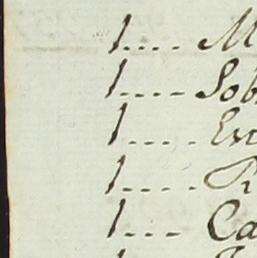 1.... M
1.... Sob
1..... En
1..... R
1.... Ca